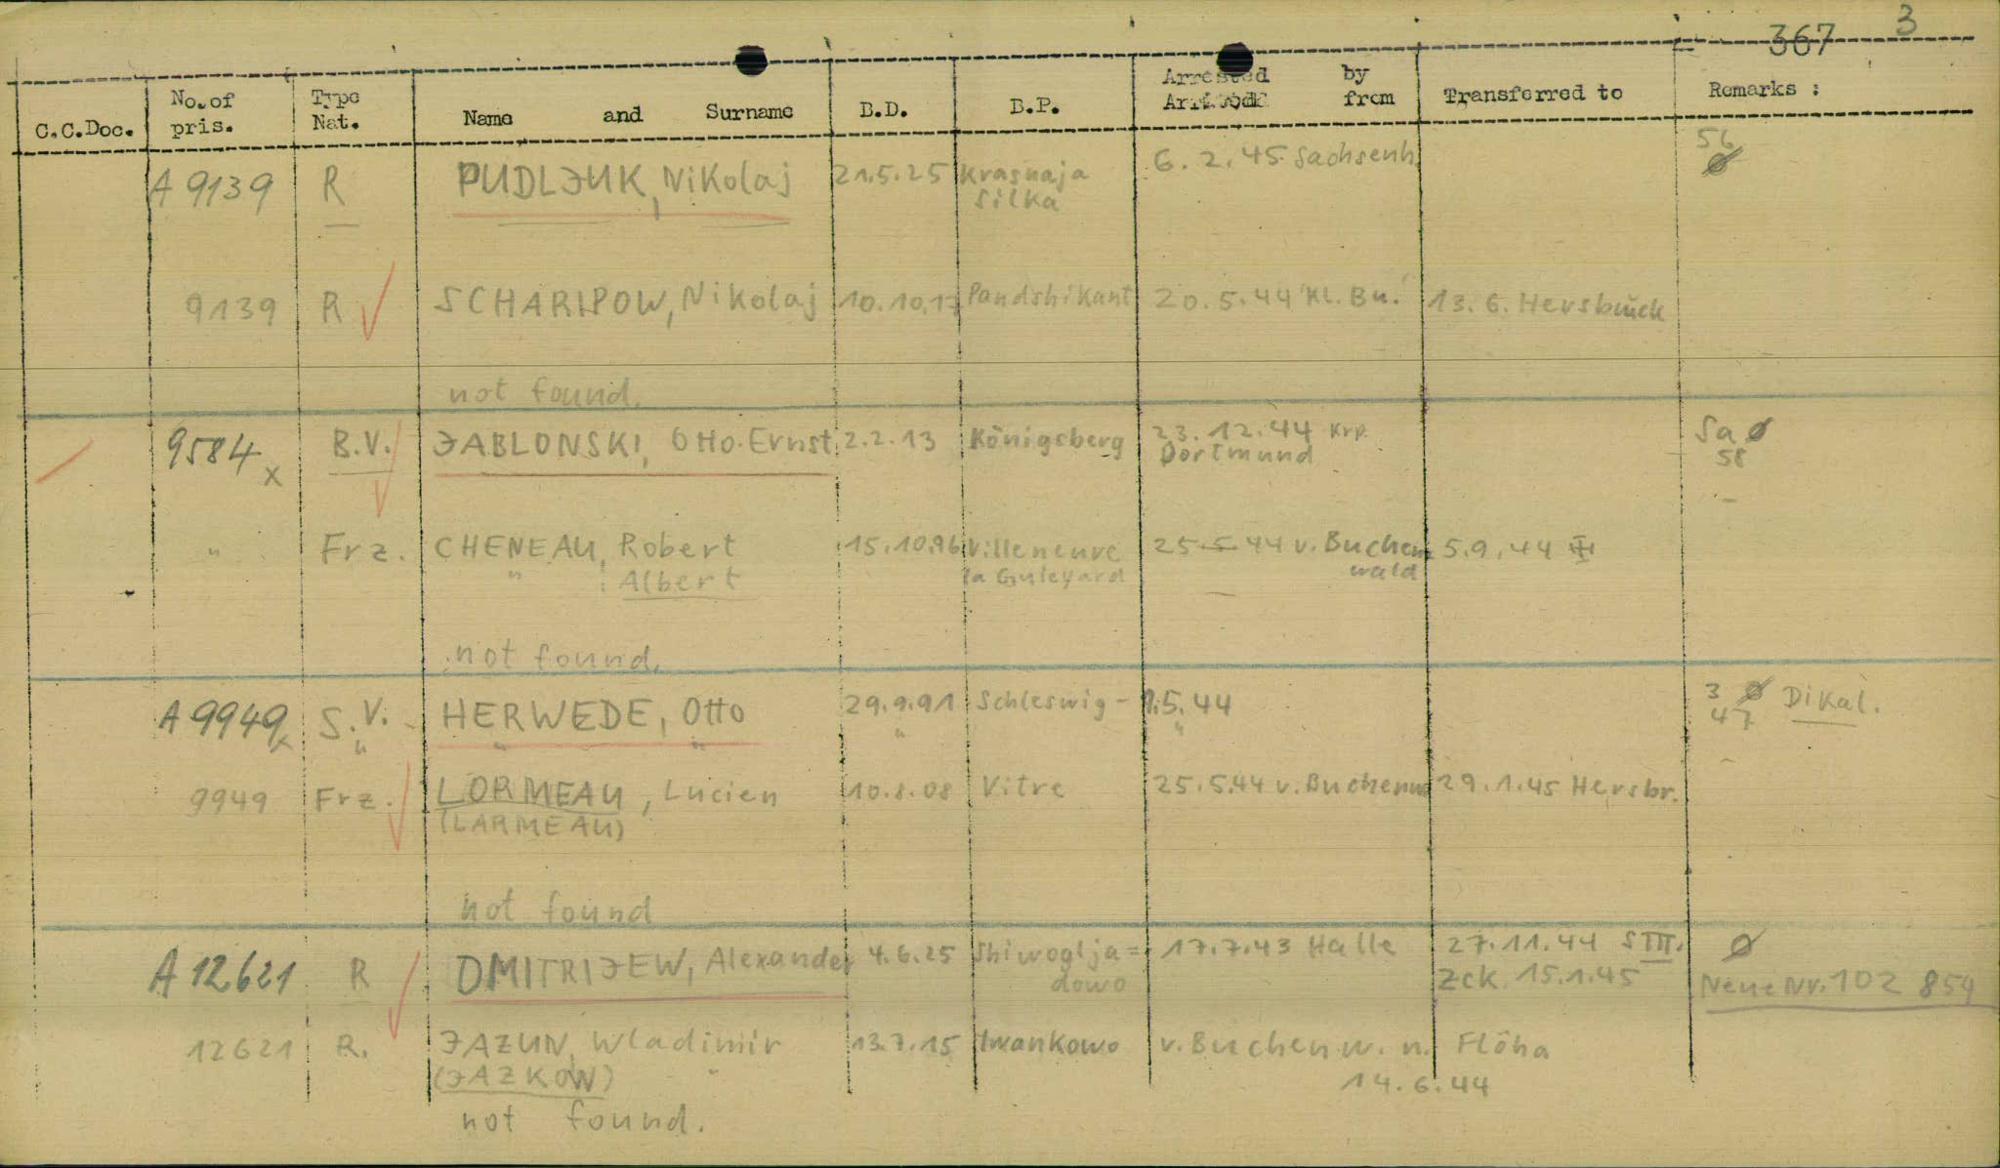 367 3
C.C.Doc. No. of pris. Type Nat. Name and Surname B.D. B.P. Arrested by from Transferred to Remarks :
A 9139 R PUDLJUK, Nikolaj 21.5.25 Krasnaja Silka 6.2.45 Sachsenh. 56
9139 R SCHARIPOW, Nikolaj 10.10.17 Pandshikant 20.5.44 Kl. Bu. 13.6. Hersbruck
not found.
9584 x B.V. JABLONSKI, Otto-Ernst 2.2.13 Königsberg 23.12.44 Krp. Dortmund Sa ø 58
" Frz. CHENEAU, Robert 15.10.96 Villeneuve 25.5.44 v. Buchenwald 5.9.44 III
" Albert la
not found.
A 9949 x S.V. HERWEDE, Otto 29.9.91 Schleswig - 1.5.44 3 ø 47 Dikal.
" " " " "
9949 Frz. LORMEAU, Lucien 10.8.08 Vitre 25.5.44 v. Buchenw 29.1.45 Hersbr.
(LARMEAU)
not found
A 12621 R DMITRIJEW, Alexander 4.6.25 Shiwoglja= dowo 17.7.43 Halle 27.11.44 S III. ø
Zck. 15.1.45 Neue Nr. 102 859
12621 R. JAZUN, Wladimir 13.7.15 Iwankowo v. Buchenw. n. Flöha
(JAZKOW) 14.6.44
not found.